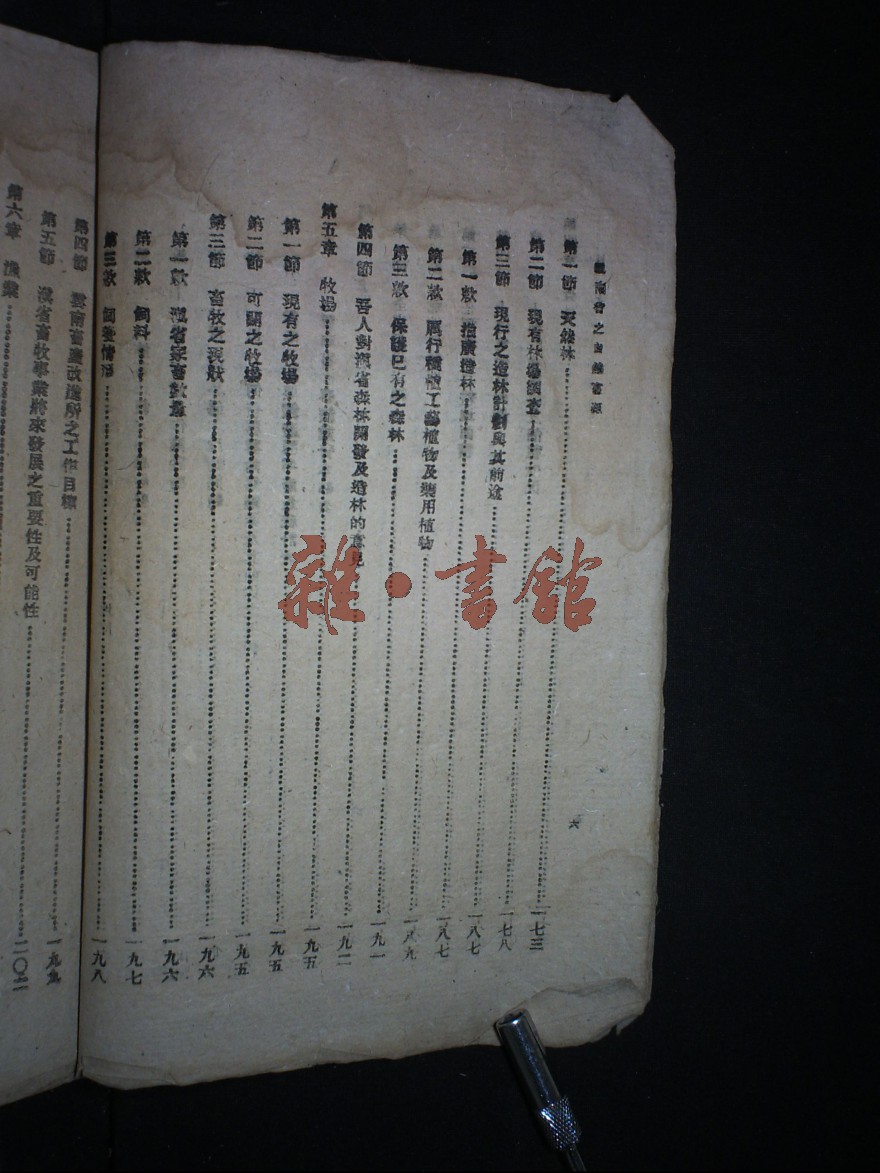 雲南省之自然富源
六
第一節 天然林……一七三
第二節 現有林場調查……一七八
第三節 現行之造林計劃與其前途……一八七
第一款 推廣造林……一八七
第二款 厲行種植工藝植物及藥用植物……一八九
第三款 保護已有之森林……一九一
第四節 吾人對滇省森林開發及造林的意見……一九二
第五章 牧場……一九五
第一節 現有之牧場……一九五
第二節 可闢之牧場……一九五
第三節 畜牧之現狀……一九六
第一款 滇省家畜數量……一九六
第二款 飼料……一九七
第三款 飼養情形……一九八
第四節 雲南畜產改進所之工作目標……一九九
第五節 滇省畜牧事業將來發展之重要性及可能性……二〇二
第六章 漁業……
雜·書館